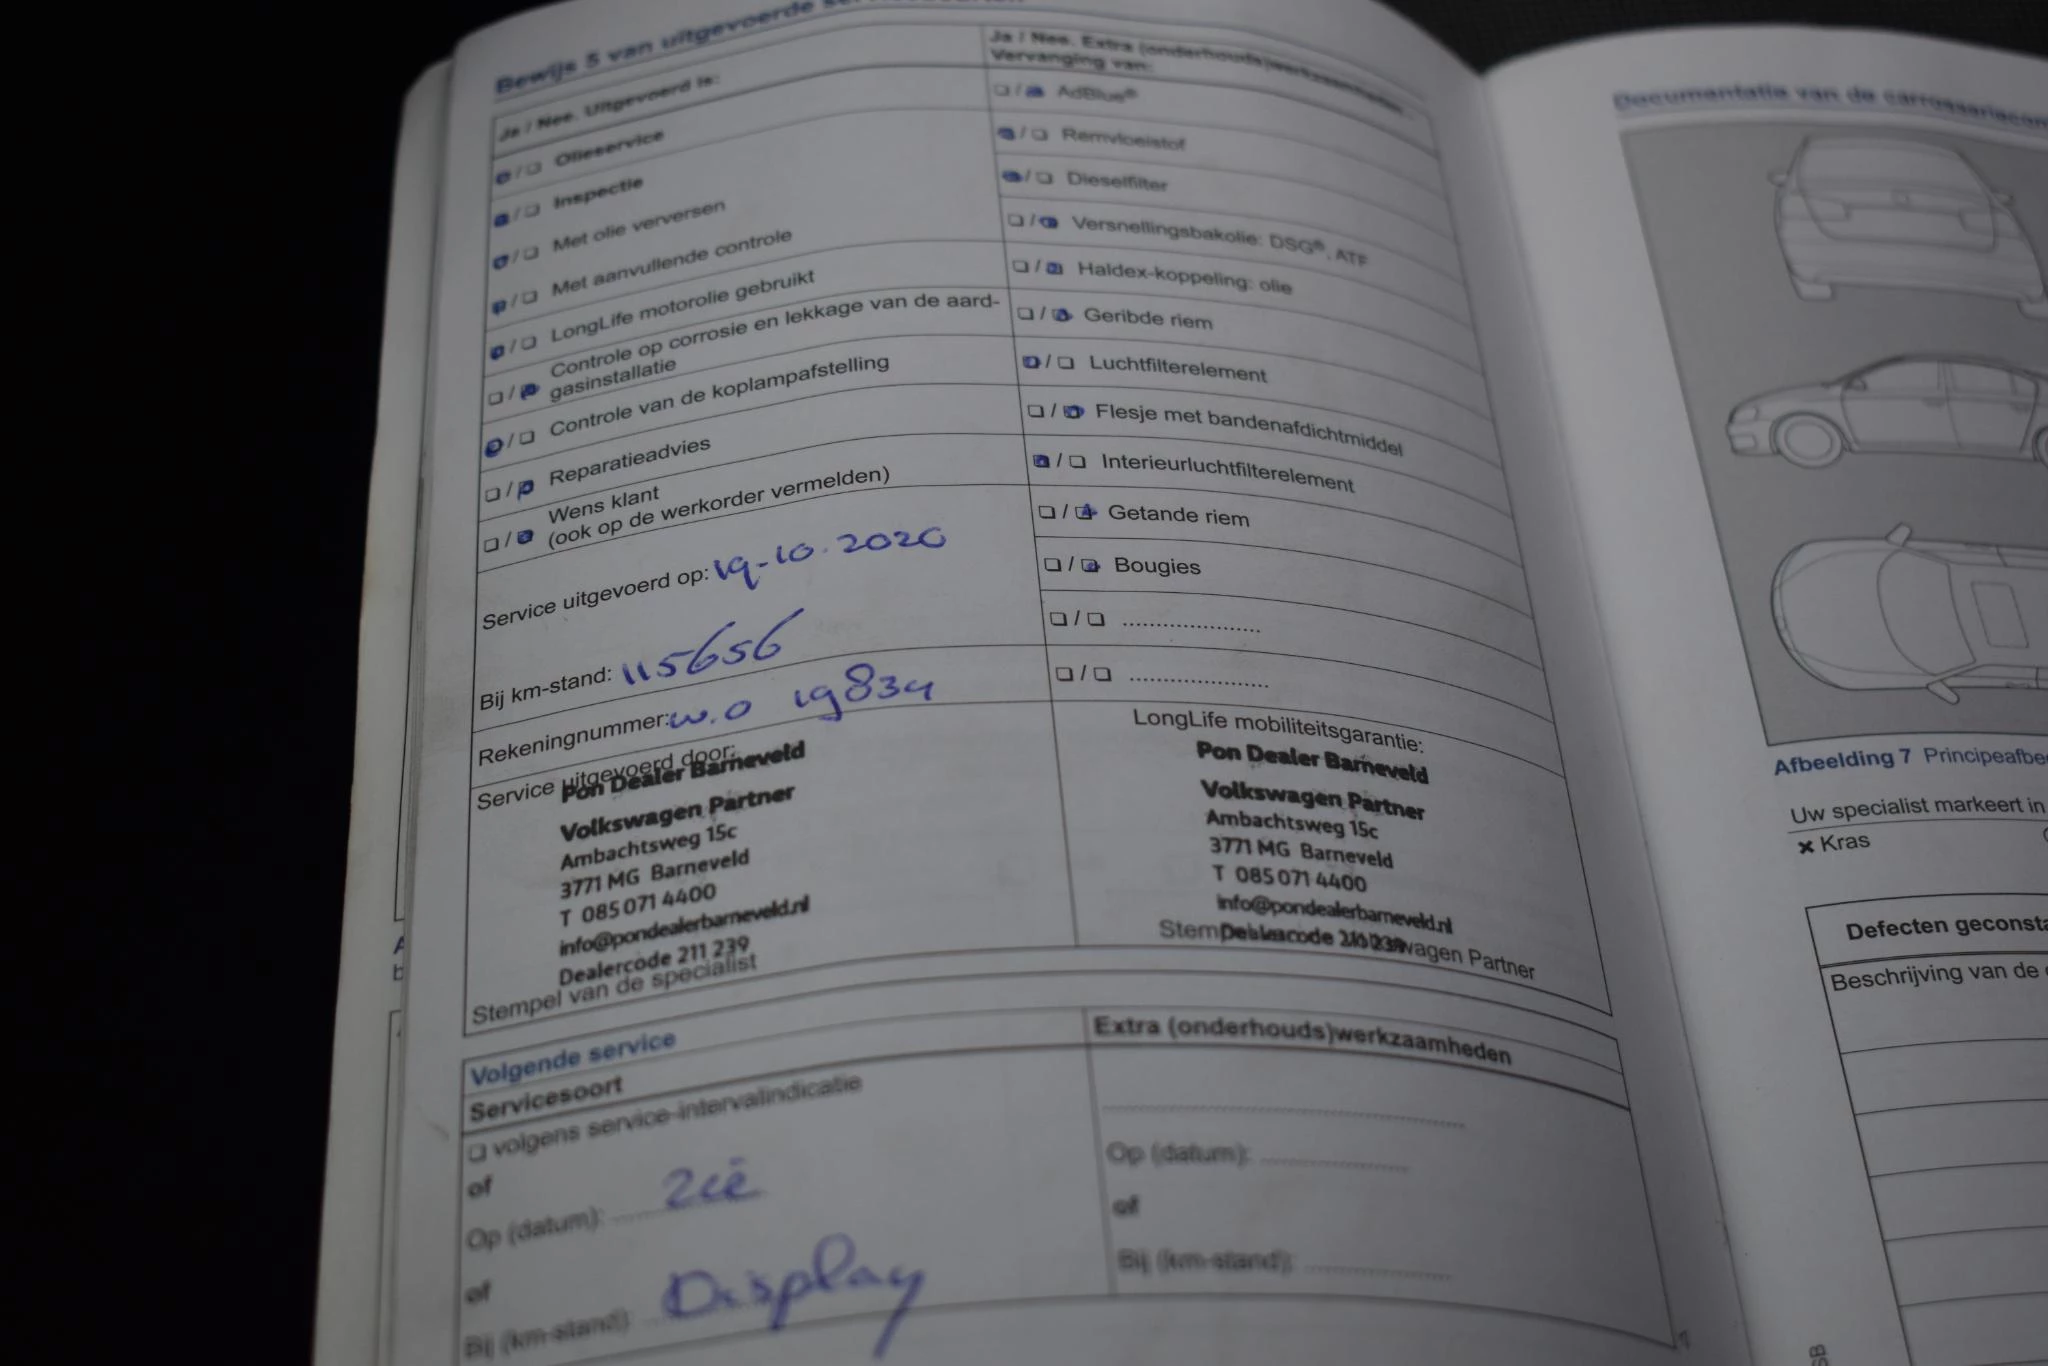 Bewijs 5 van uitgevoerde
Ja / Nee. Uitgevoerd is:
❏ / ❏ Olieservice
❏ / ❏ Inspectie
❏ / ❏ Met olie verversen
❏ / ❏ Met aanvullende controle
❏ / ❏ LongLife motorolie gebruikt
❏ / ❏ Controle op corrosie en lekkage van de aard-
gasinstallatie
❏ / ❏ Controle van de koplampafstelling
❏ / ❏ Reparatieadvies
❏ / ❏ Wens klant
(ook op de werkorder vermelden)
Service uitgevoerd op: 19-10.2020
Bij km-stand: 115656
Rekeningnummer: w.o 19834
Service uitgevoerd door:
Pon Dealer Barneveld
Volkswagen Partner
Ambachtsweg 15c
3771 MG Barneveld
T 085 071 4400
info@pondealerbarneveld.nl
Dealercode 211 239
Stempel van de specialist
Ja / Nee. Extra (onderhouds)werkzaamheden.
Vervanging van:
❏ / ❏ AdBlue®
❏ / ❏ Remvloeistof
❏ / ❏ Dieselfilter
❏ / ❏ Versnellingsbakolie: DSG®, ATF
❏ / ❏ Haldex-koppeling: olie
❏ / ❏ Geribde riem
❏ / ❏ Luchtfilterelement
❏ / ❏ Flesje met bandenafdichtmiddel
❏ / ❏ Interieurluchtfilterelement
❏ / ❏ Getande riem
❏ / ❏ Bougies
❏ / ❏ ....................
❏ / ❏ ....................
LongLife mobiliteitsgarantie:
Pon Dealer Barneveld
Volkswagen Partner
Ambachtsweg 15c
3771 MG Barneveld
T 085 071 4400
info@pondealerbarneveld.nl
Dealercode 211 239
Volgende service
Servicesoort
❏ volgens service-intervalindicatie
of
Op (datum): zie
of
Bij (km-stand): Display
Extra (onderhouds)werkzaamheden
Op (datum):
of
Bij (km-stand):
7
Documentatie van de
Afbeelding 7
Uw specialist markeert in
✖ Kras
Defecten
Beschrijving van de